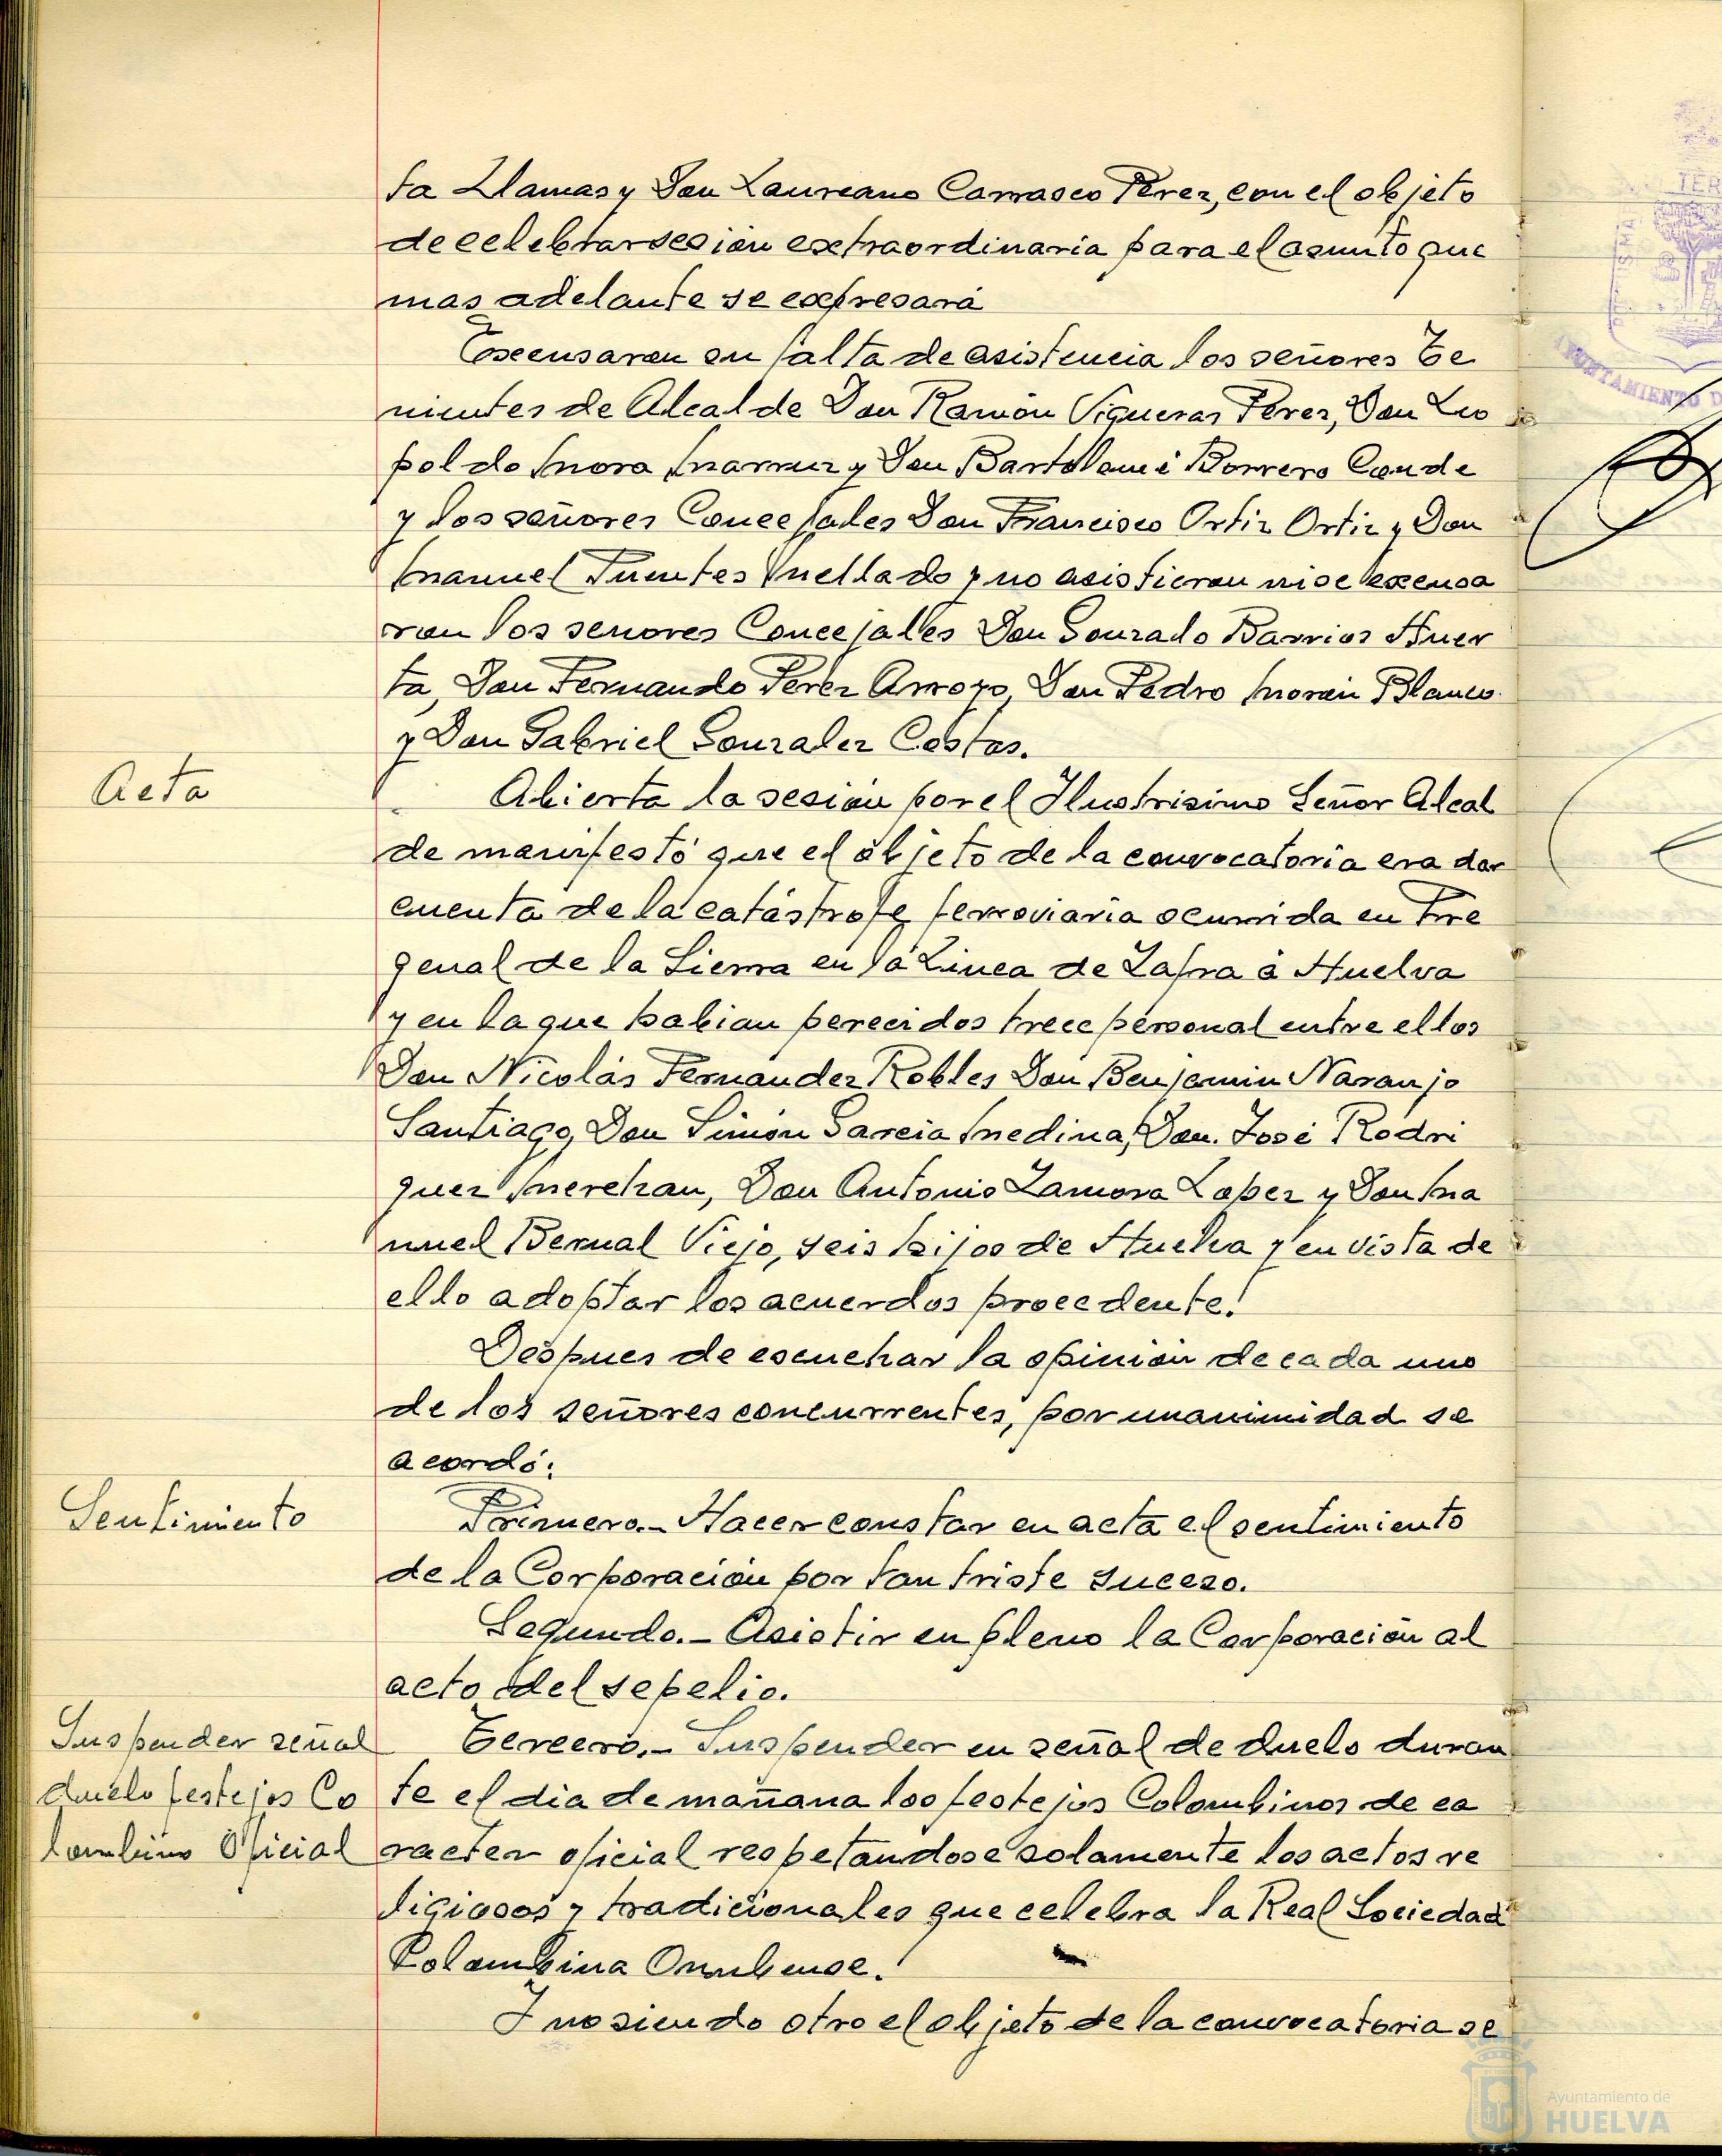 ta Llamas y Don Laureano Carrasco Perez, con el objeto
de celebrar sesion extraordinaria para el asunto que
mas adelante se expresará
Excusaron su falta de asistencia los señores Te
nientes de Alcalde Don Ramón Vigueras Perez, Don Leo
poldo Mora y Don Bartolomé Borrero Conde
y los señores Concejales Don Francisco Ortiz Ortiz y Don
Manuel Fuentes Mellado y no asistieron ni se excusa
ron los señores Concejales Don Gonzalo Barrios Huer
ta, Don Fernando Perez Arroyo, Don Pedro Morón Blanco
y Don Gabriel Gonzalez Costas.
Acta
Abierta la sesión por el Ilustrisimo Señor Alcal
de manifestó que el objeto de la convocatoria era dar
cuenta de la catástrofe ferroviaria ocurrida en Fre
genal de la Sierra en la Linea de Zafra á Huelva
y en la que habian perecidos trece personal entre ellos
Don Nicolás Fernandez Robles Don Benjamin Naranjo
Santiago, Don Simón Garcia Medina, Don. José Rodri
guez Merchan, Don Antonio Zamora Lopez y Don Ma
nuel Bernal Viejo, seis hijos de Huelva y en vista de
ello adoptar los acuerdos procedente!
Despues de escuchar la opinión de cada uno
de los señores concurrentes, por unanimidad se
acordó:
Sentimiento
Primero.- Hacer constar en acta el sentimiento
de la Corporación por tan triste suceso.
Segundo.- Asistir en pleno la Corporación al
acto del sepelio.
Suspender señal
duelo festejos Co
lombino Oficial
Tercero.- Suspender en señal de duelo duran
te el dia de mañana los festejos Colombinos de ca
racter oficial respetandose solamente los actos re
ligiosos y tradicionales que celebra la Real Sociedad
Colombina Onubense.
Y no siendo otro el objeto de la convocatoria se
AYUNTAMIENTO D
Ayuntamiento de
HUELVA